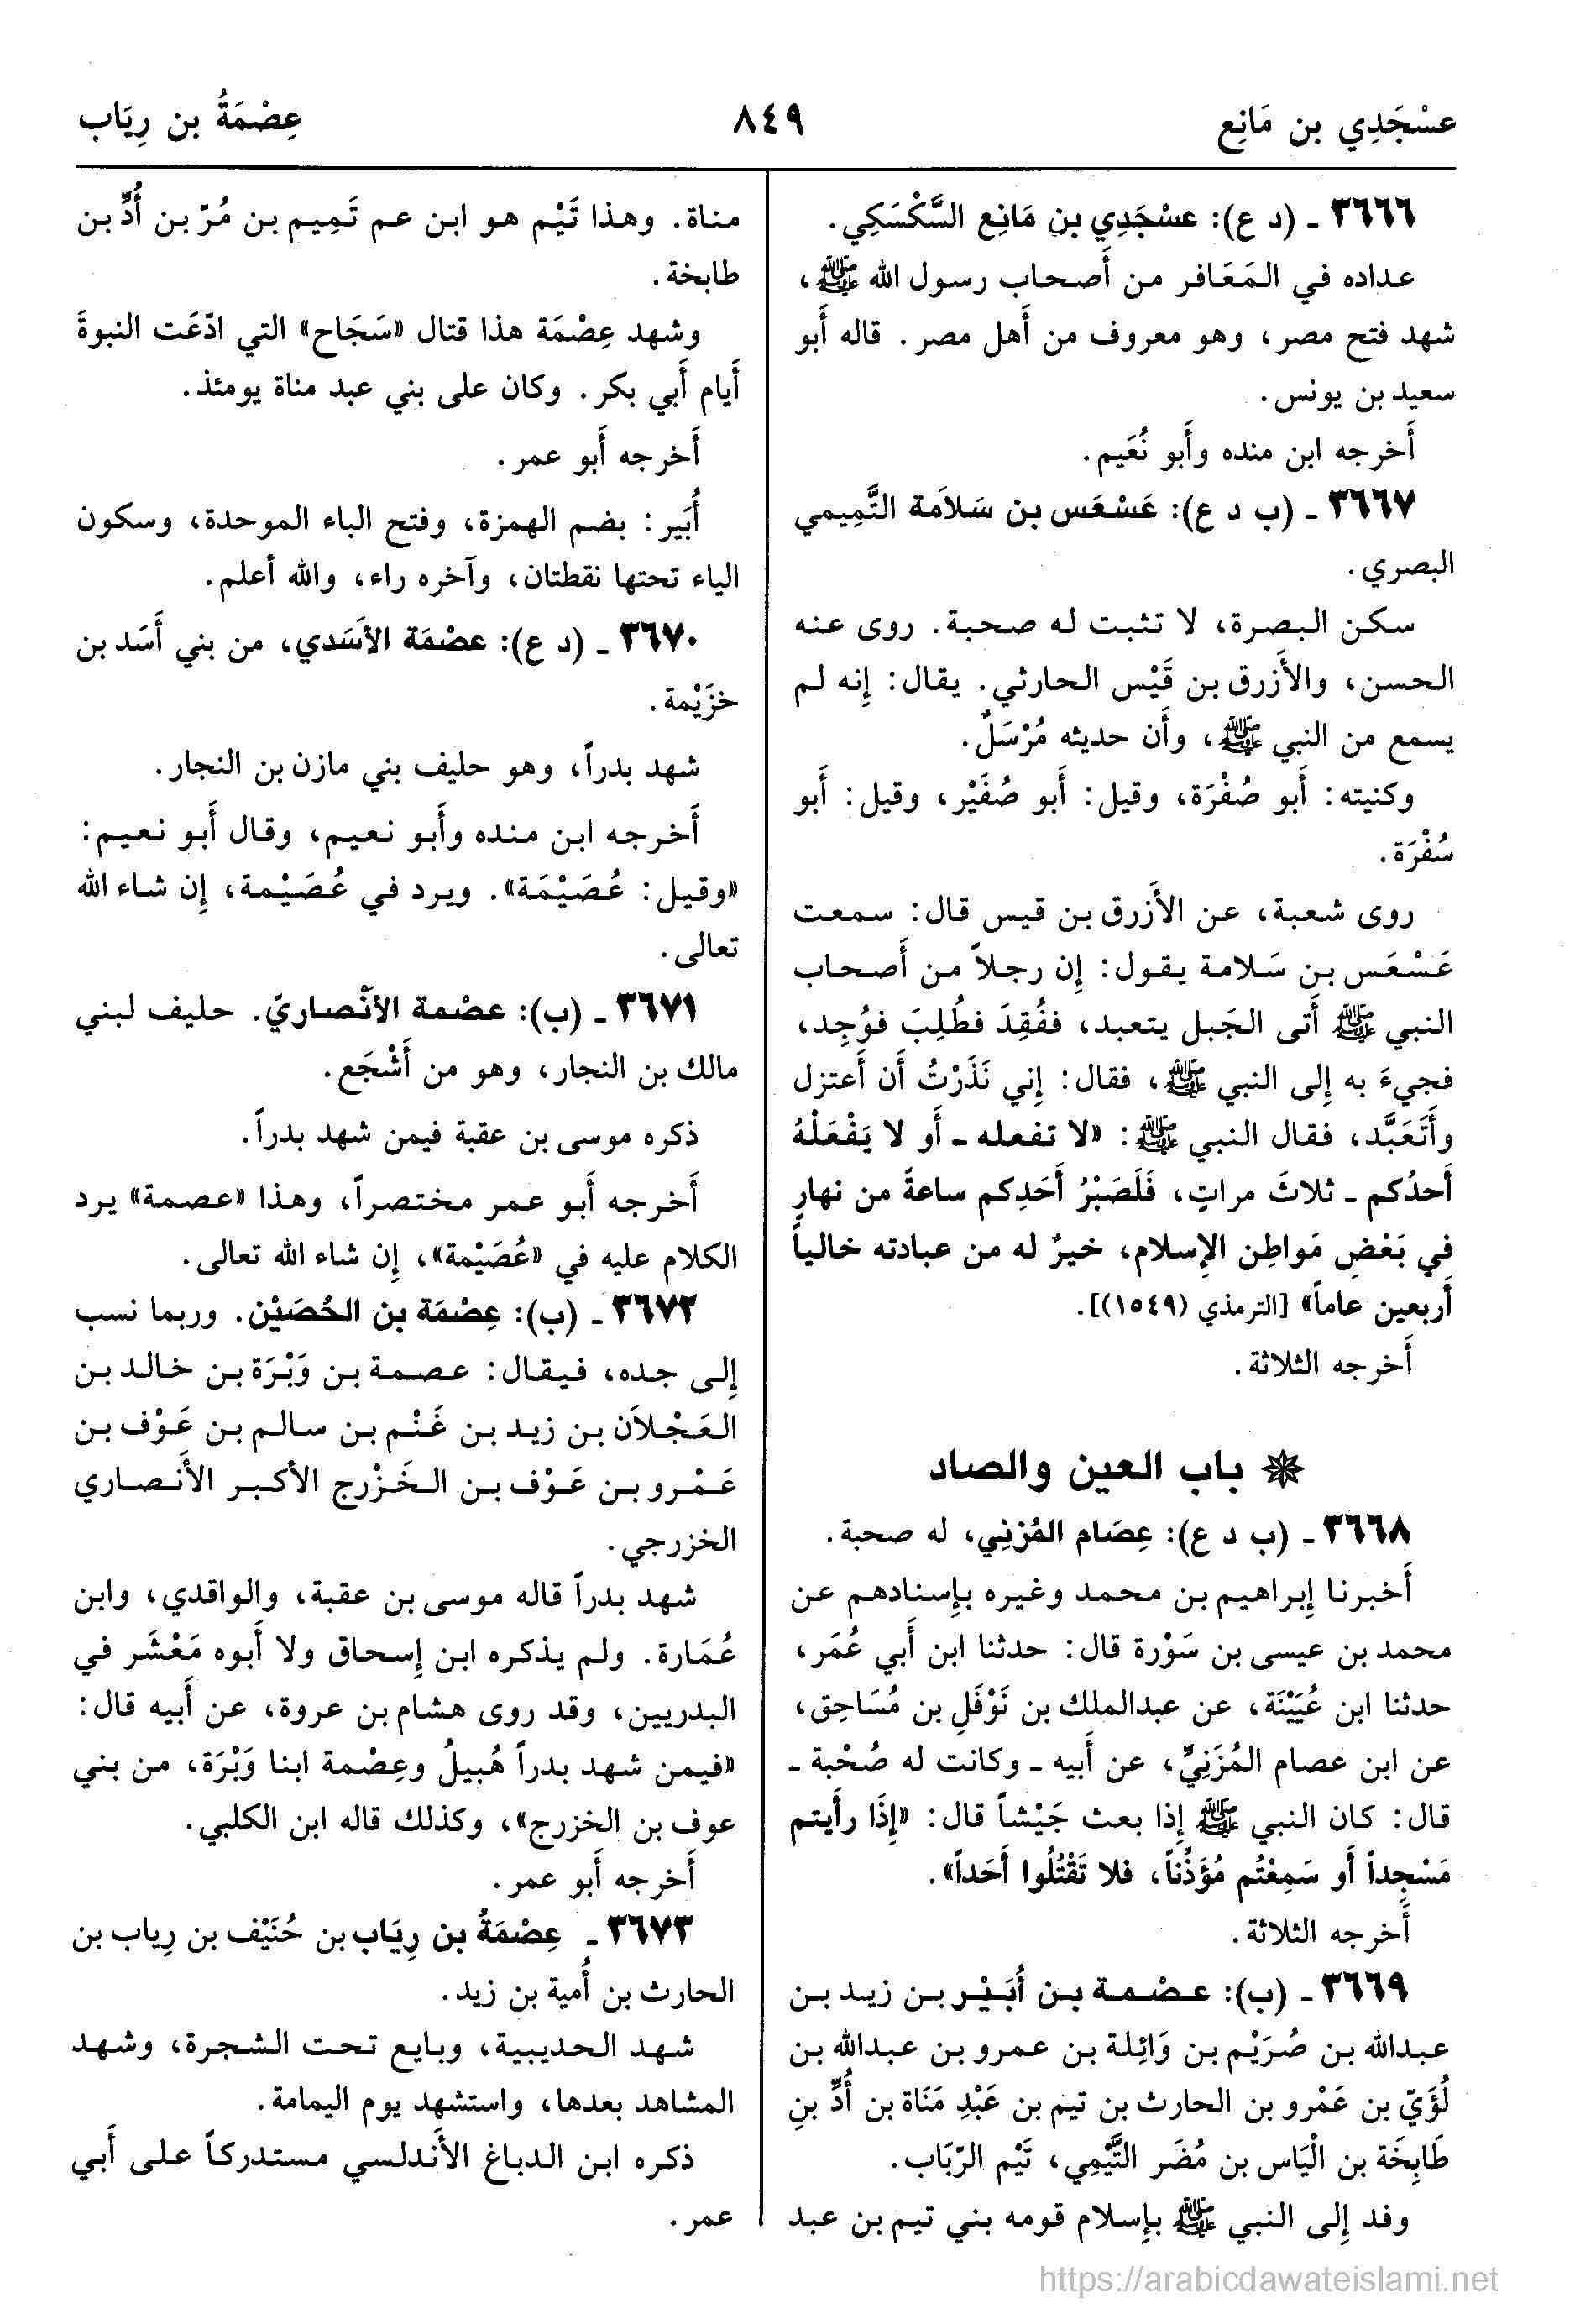 عسْجَدِي بن مَانِع
٨٤٩
عِصْمَةُ بن رِيَاب
٣٦٦٦ ـ (د ع): عسْجَدِي بنِ مَانِع السَّكْسَكِي.
عداده في المَعَافر من أَصحاب رسول الله ﷺ،
شهد فتح مصر، وهو معروف من أَهل مصر. قاله أَبو
سعيد بن يونس.
أَخرجه ابن منده وأَبو نُعَيم.
٣٦٦٧ ـ (ب د ع): عَسْعَس بن سَلاَمَة التَّمِيمي
البصري.
سكن البصرة، لا تثبت له صحبة. روى عنه
الحسن، والأَزرق بن قَيْس الحارثي. يقال: إِنه لم
يسمع من النبي ﷺ، وأَن حديثه مُرْسَلٌ.
وكنيته: أَبو صُفْرَة، وقيل: أَبو صُفَيْر، وقيل: أَبو
سُفْرَة.
روى شعبة، عن الأَزرق بن قيس قال: سمعت
عَسْعَس بن سَلامة يقول: إِن رجلاً من أَصحاب
النبي ﷺ أَتى الجَبل يتعبد، ففُقِدَ فطُلِبَ فوُجِد،
فجيءَ به إِلى النبي ﷺ، فقال: إِني نَذَرْتُ أَن أَعتزل
وأَتَعَبَّد، فقال النبي ﷺ: «لا تفعله ـ أَو لا يَفْعَلْهُ
أَحدُكم ـ ثلاثَ مراتٍ، فَلَصَبْرُ أَحَدِكم ساعةً من نهارٍ
في بَعْضِ مَواطِن الإِسلام، خيرٌ له من عبادته خالياً
أَربعين عاماً» [الترمذي (١٥٤٩)].
أَخرجه الثلاثة.
باب العين والصاد
٣٦٦٨ ـ (ب د ع): عِصَام المُزنِي، له صحبة.
أَخبرنا إِبراهيم بن محمد وغيره بإِسنادهم عن
محمد بن عيسى بن سَوْرة قال: حدثنا ابن أَبي عُمَر،
حدثنا ابن عُيَيْنَة، عن عبدالملك بن نَوْفَلِ بن مُسَاحِق،
عن ابن عصام المُزَنِيِّ، عن أَبيه ـ وكانت له صُحْبة ـ
قال: كان النبي ﷺ إِذا بعث جَيْشاً قال: «إِذَا رأَيتم
مَسْجِداً أَو سَمِعْتُم مُؤَذِّناً، فلا تَقْتُلُوا أَحَداً».
أَخرجه الثلاثة.
٣٦٦٩ ـ (ب): عـصْـمـة بـن أُبَـيْـر بـن زيـد بـن
عبدالله بن صُرَيْم بن وَائِلة بن عمرو بن عبدالله بن
لُؤَيّ بن عَمْرو بن الحارث بن تيم بن عَبْدِ مَنَاة بن أُدِّ بنِ
طَابِخَة بن الْيَاس بن مُضَر التَّيْمِي، تَيْم الرّبَاب.
وفد إِلى النبي ﷺ بإِسلام قومه بني تيم بن عبد
مناة. وهذا تَيْم هو ابن عم تَمِيم بن مُرّ بن أُدِّ بن
طابخة.
وشهد عِصْمَة هذا قتال «سَجَاح» التي ادّعَت النبوةَ
أَيام أَبي بكر. وكان على بني عبد مناة يومئذ.
أَخرجه أَبو عمر.
أُبَير: بضم الهمزة، وفتح الباء الموحدة، وسكون
الياء تحتها نقطتان، وآخره راء، والله أعلم.
٣٦٧٠ ـ (د ع): عصْمَة الأَسَدي، من بني أَسَد بن
خزَيْمة.
شهد بدراً، وهو حليف بني مازن بن النجار.
أَخرجه ابن منده وأَبو نعيم، وقال أَبو نعيم:
«وقيل: عُصَيْمَة». ويرد في عُصَيْمة، إِن شاء الله
تعالى.
٣٦٧١ ـ (ب): عصْمة الأَنْصاريّ. حليف لبني
مالك بن النجار، وهو من أَشْجَع.
ذكره موسى بن عقبة فيمن شهد بدراً.
أَخرجه أَبو عمر مختصراً، وهذا «عصمة» يرد
الكلام عليه في «عُصَيْمة»، إِن شاء الله تعالى.
٣٦٧٢ ـ (ب): عِصْمَة بن الحُصَيْن. وربما نسب
إِلى جده، فيقال: عصمة بن وَبْرَة بن خالد بن
العَجْلاَن بن زيد بن غَنْم بن سالم بن عَوْف بن
عَمْرو بن عَوْف بن الخَزْرج الأكبر الأَنصاري
الخزرجي.
شهد بدراً قاله موسى بن عقبة، والواقدي، وابن
عُمَارة. ولم يذكره ابن إِسحاق ولا أَبوه مَعْشَر في
البدريين، وقد روى هشام بن عروة، عن أَبيه قال:
«فيمن شهد بدراً هُبيلُ وعِصْمة ابنا وَبْرَة، من بني
عوف بن الخزرج»، وكذلك قاله ابن الكلبي.
أَخرجه أَبو عمر.
٣٦٧٣ ـ عِصْمَةُ بن رِيَاب بن حُنَيْف بن رِياب بن
الحارث بن أُمية بن زيد.
شهد الحديبية، وبايع تحت الشجرة، وشهد
المشاهد بعدها، واستشهد يوم اليمامة.
ذكره ابن الدباغ الأَندلسي مستدركاً على أَبي
عمر.
https://arabicdawateislami.net